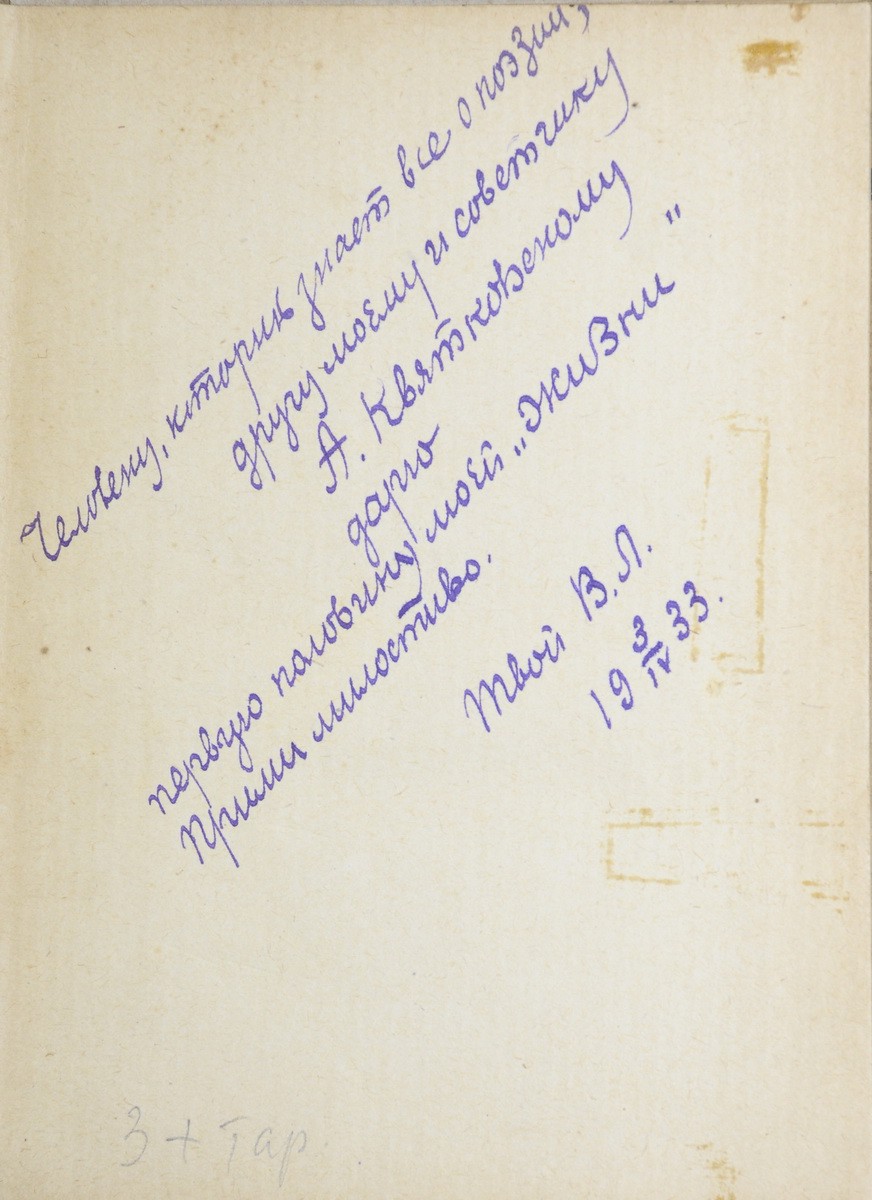 Человеку, которий знает все о поэзии,
другу моему и советчику
А. Квятковскому
дарю
первую половину моей „Жизни"
Прими милостиво.
Твой В.Л.
19 3/IV 33.
3 + Тар